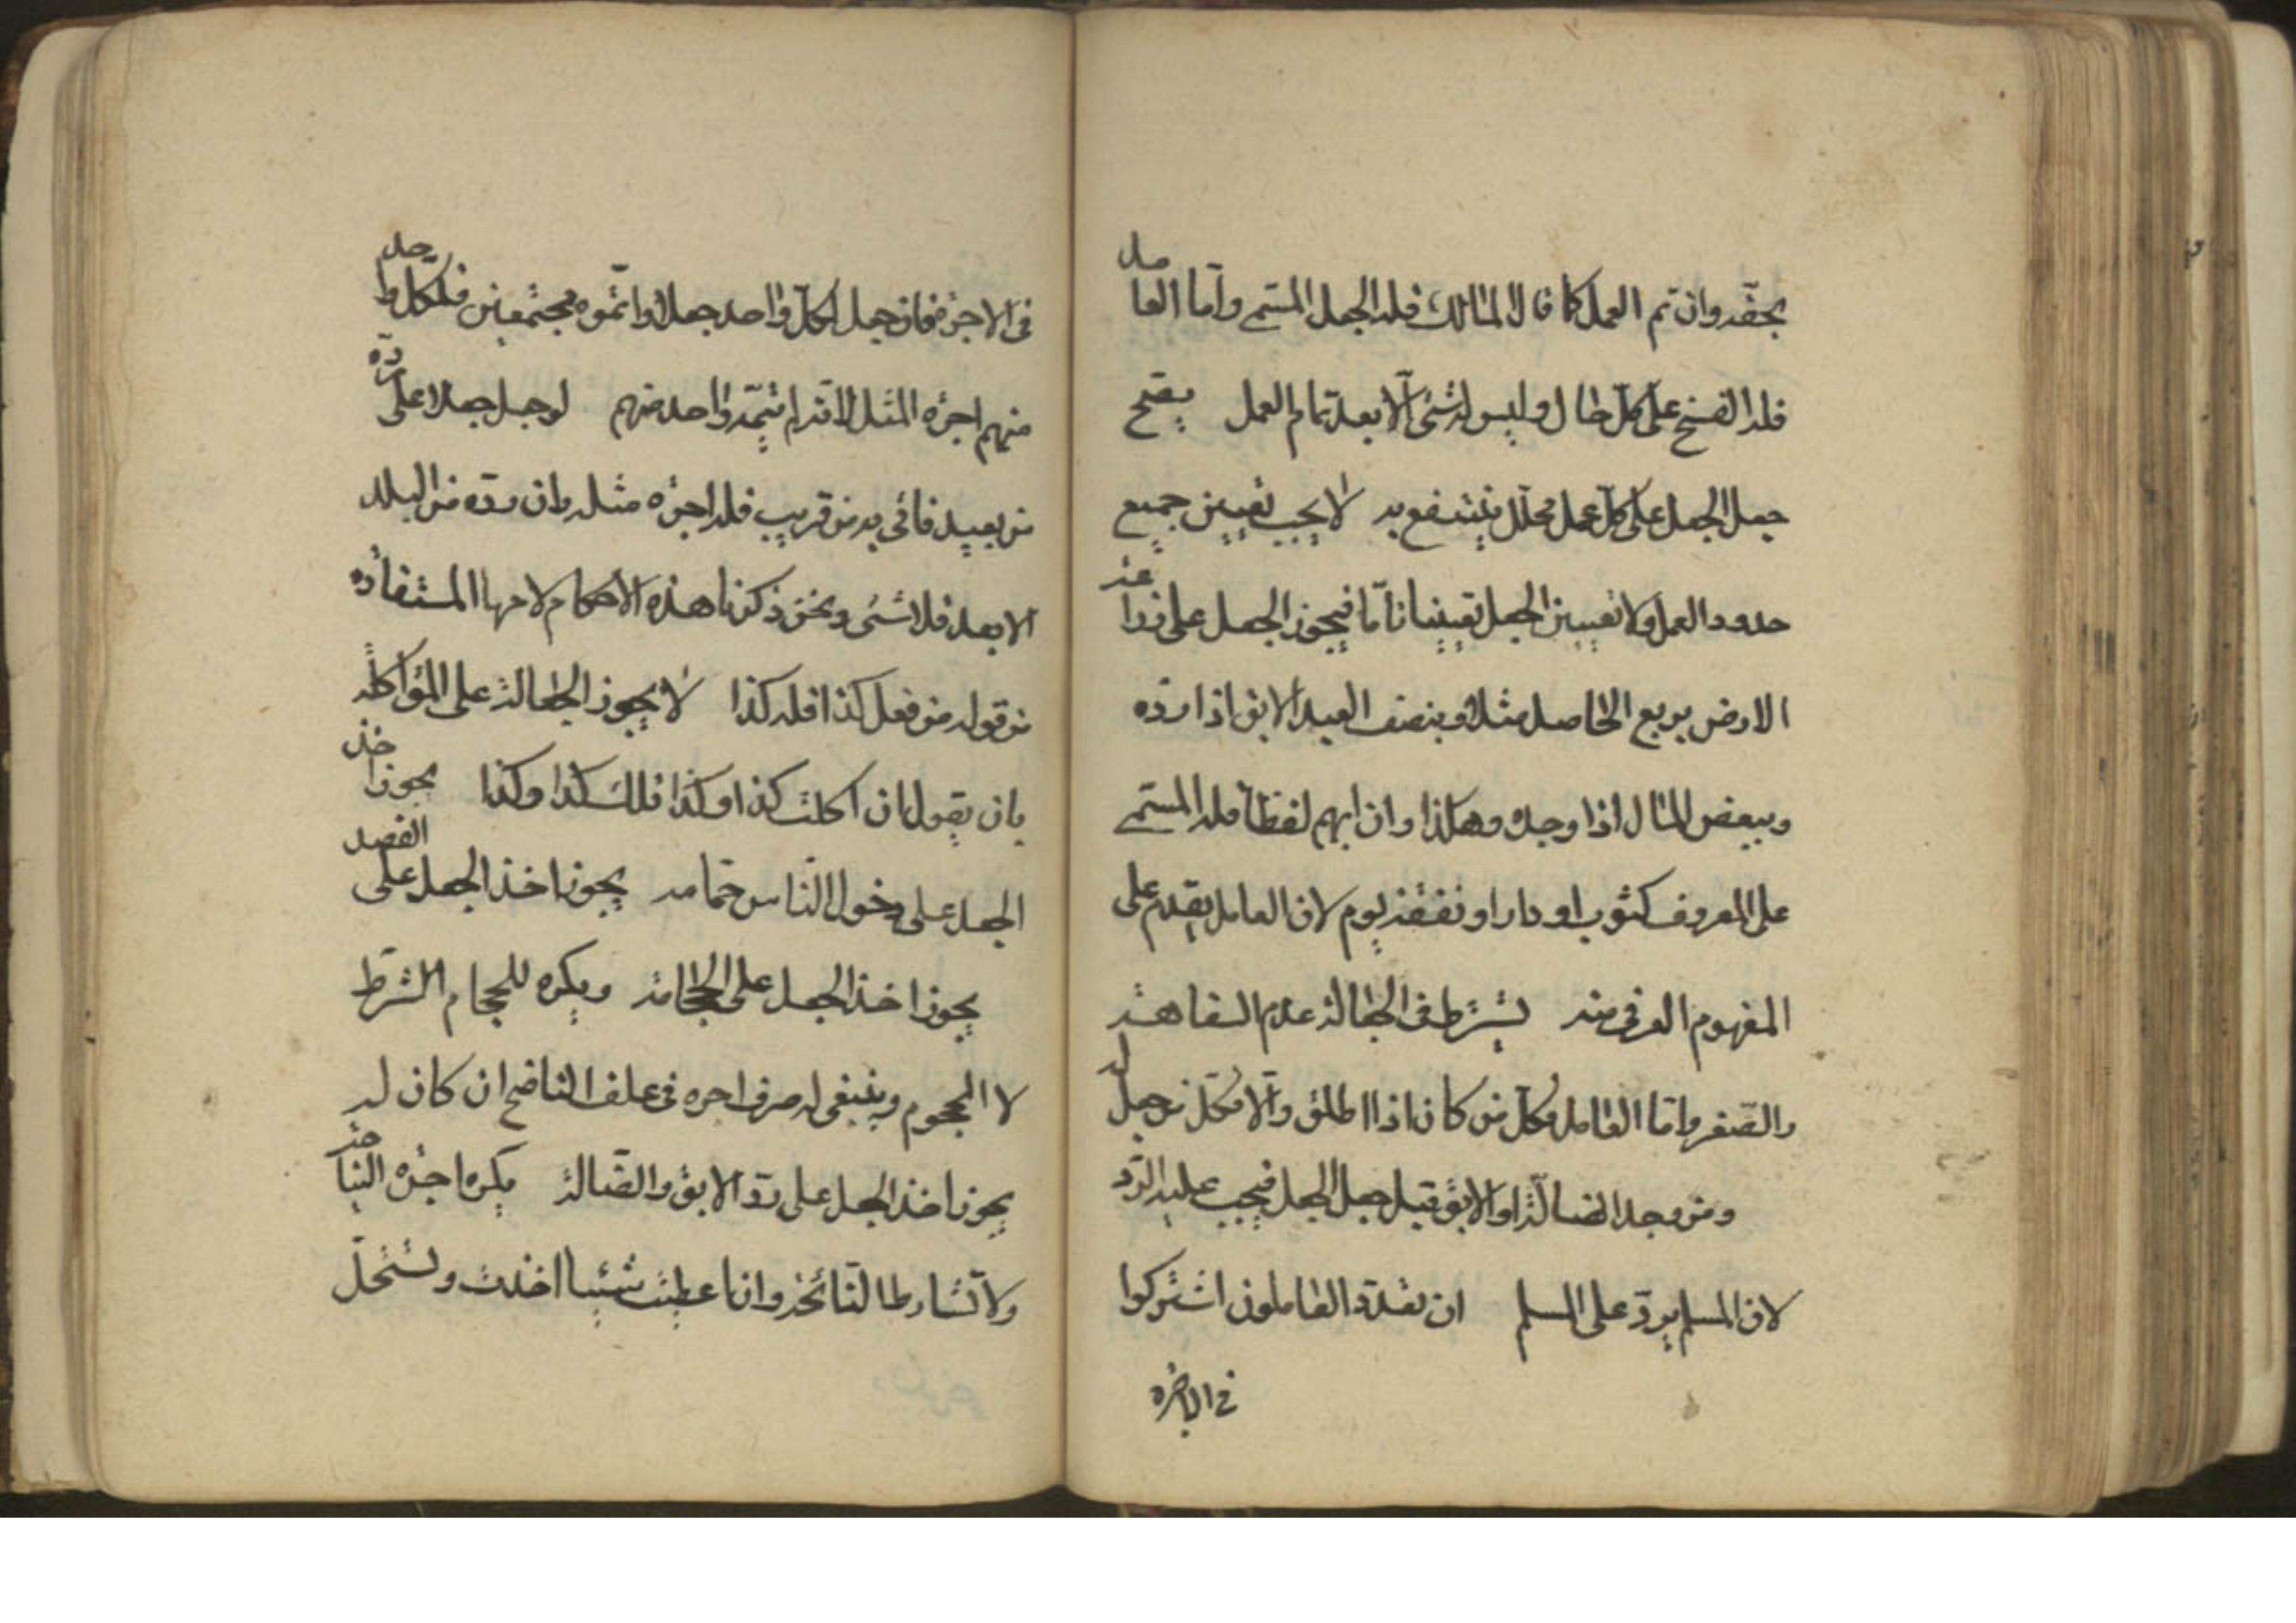 بحقه وان تم العمل كما قال المالك فله الجعل المسمى واما العامل
فله الفسخ على كل حال وليس له شئ الا بعد تمام العمل يصح
جعل الجعل على كل عمل محلل ينتفع به لا يجب تعيين جميع
حدود العمل ولا تعيين الجعل تعيينا تاما فيجوز الجعل على زراعة
الارض بربع الحاصل مثلا وبنصف العبد الابق اذا رده
وببعض المال اذا وجده وهكذا وان ابهم لفظا فله المسمى
على المعروف كثوب او دار او نفقة يوم لان العامل يقدم على
المفهوم العرفى منه يشترط فى الجعالة عدم السفاهة
والصغر واما العامل فكل من كان اذا اطلق والا فكل من جعل له
ومن وجد الضالة او الابق قبل جعل الجعل فيجب عليه الرد
لان المسلم يرد على المسلم ان تعدد العاملون اشتركوا
فى الاجره
فى الاجره فان جعل لكل واحد جعلا واتموه مجتمعين فلكل واحد
منهم اجره المثل لانه لم يتمه واحد منهم لو جعل جعلا على رده
من بعيد فاتى به من قريب فله اجره مثله وان رده من البلد
الابعد فلا شئ ونحن ذكرنا هذه الاحكام لامرها المستفاده
من قوله من فعل كذا فله كذا لا يجوز الجعالة على المؤاكلة
بان يقول ان اكلت كذا وكذا فلك كذا وكذا يجوز اخذ
الجعل على دخول الناس حمامه يجوز اخذ الجعل على الفصد
يجوز اخذ الجعل على الحجامة ويكره للحجام الشرط
لا المحجوم وينبغى له صرف اجره فى علف الناضح ان كان له
يجوز اخذ الجعل على رد الابق والضالة يكره اجره النياحة
ولا تشارط النائحة وان اعطيت شيئا اخذت وتستحل